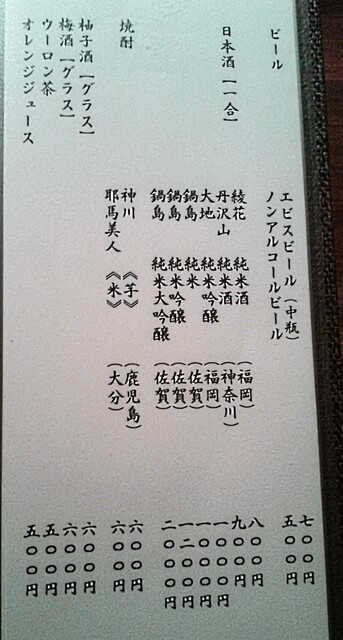 ビール
エビスビール(中瓶) 七〇〇円
ノンアルコールビール 五〇〇円
日本酒【一合】
綾花 純米酒 (福岡) 八〇〇円
丹沢山 純米酒 (神奈川) 九〇〇円
大地 純米吟醸 (福岡) 一〇〇〇円
鍋島 純米 (佐賀) 一〇〇〇円
鍋島 純米吟醸 (佐賀) 一二〇〇円
鍋島 純米大吟醸 (佐賀) 二〇〇〇円
焼酎
神川 《芋》 (鹿児島) 六〇〇円
耶馬美人 《米》 (大分) 六〇〇円
柚子酒【グラス】 六〇〇円
梅酒【グラス】 六〇〇円
ウーロン茶 五〇〇円
オレンジジュース 五〇〇円